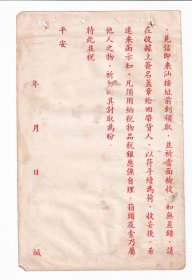 見信即來汕按址前到領取，並祈當面檢收，如無差錯，請
在收據上簽名蓋章給回帶貨人，以符手續為荷。收妥後，希
速來函示知，凡須用納稅物品稅銀應僱自理，箱頭及壹乃屬
他人之物，祈勿與其討取為盼。
特此並祝
平安
年 月 日 緘